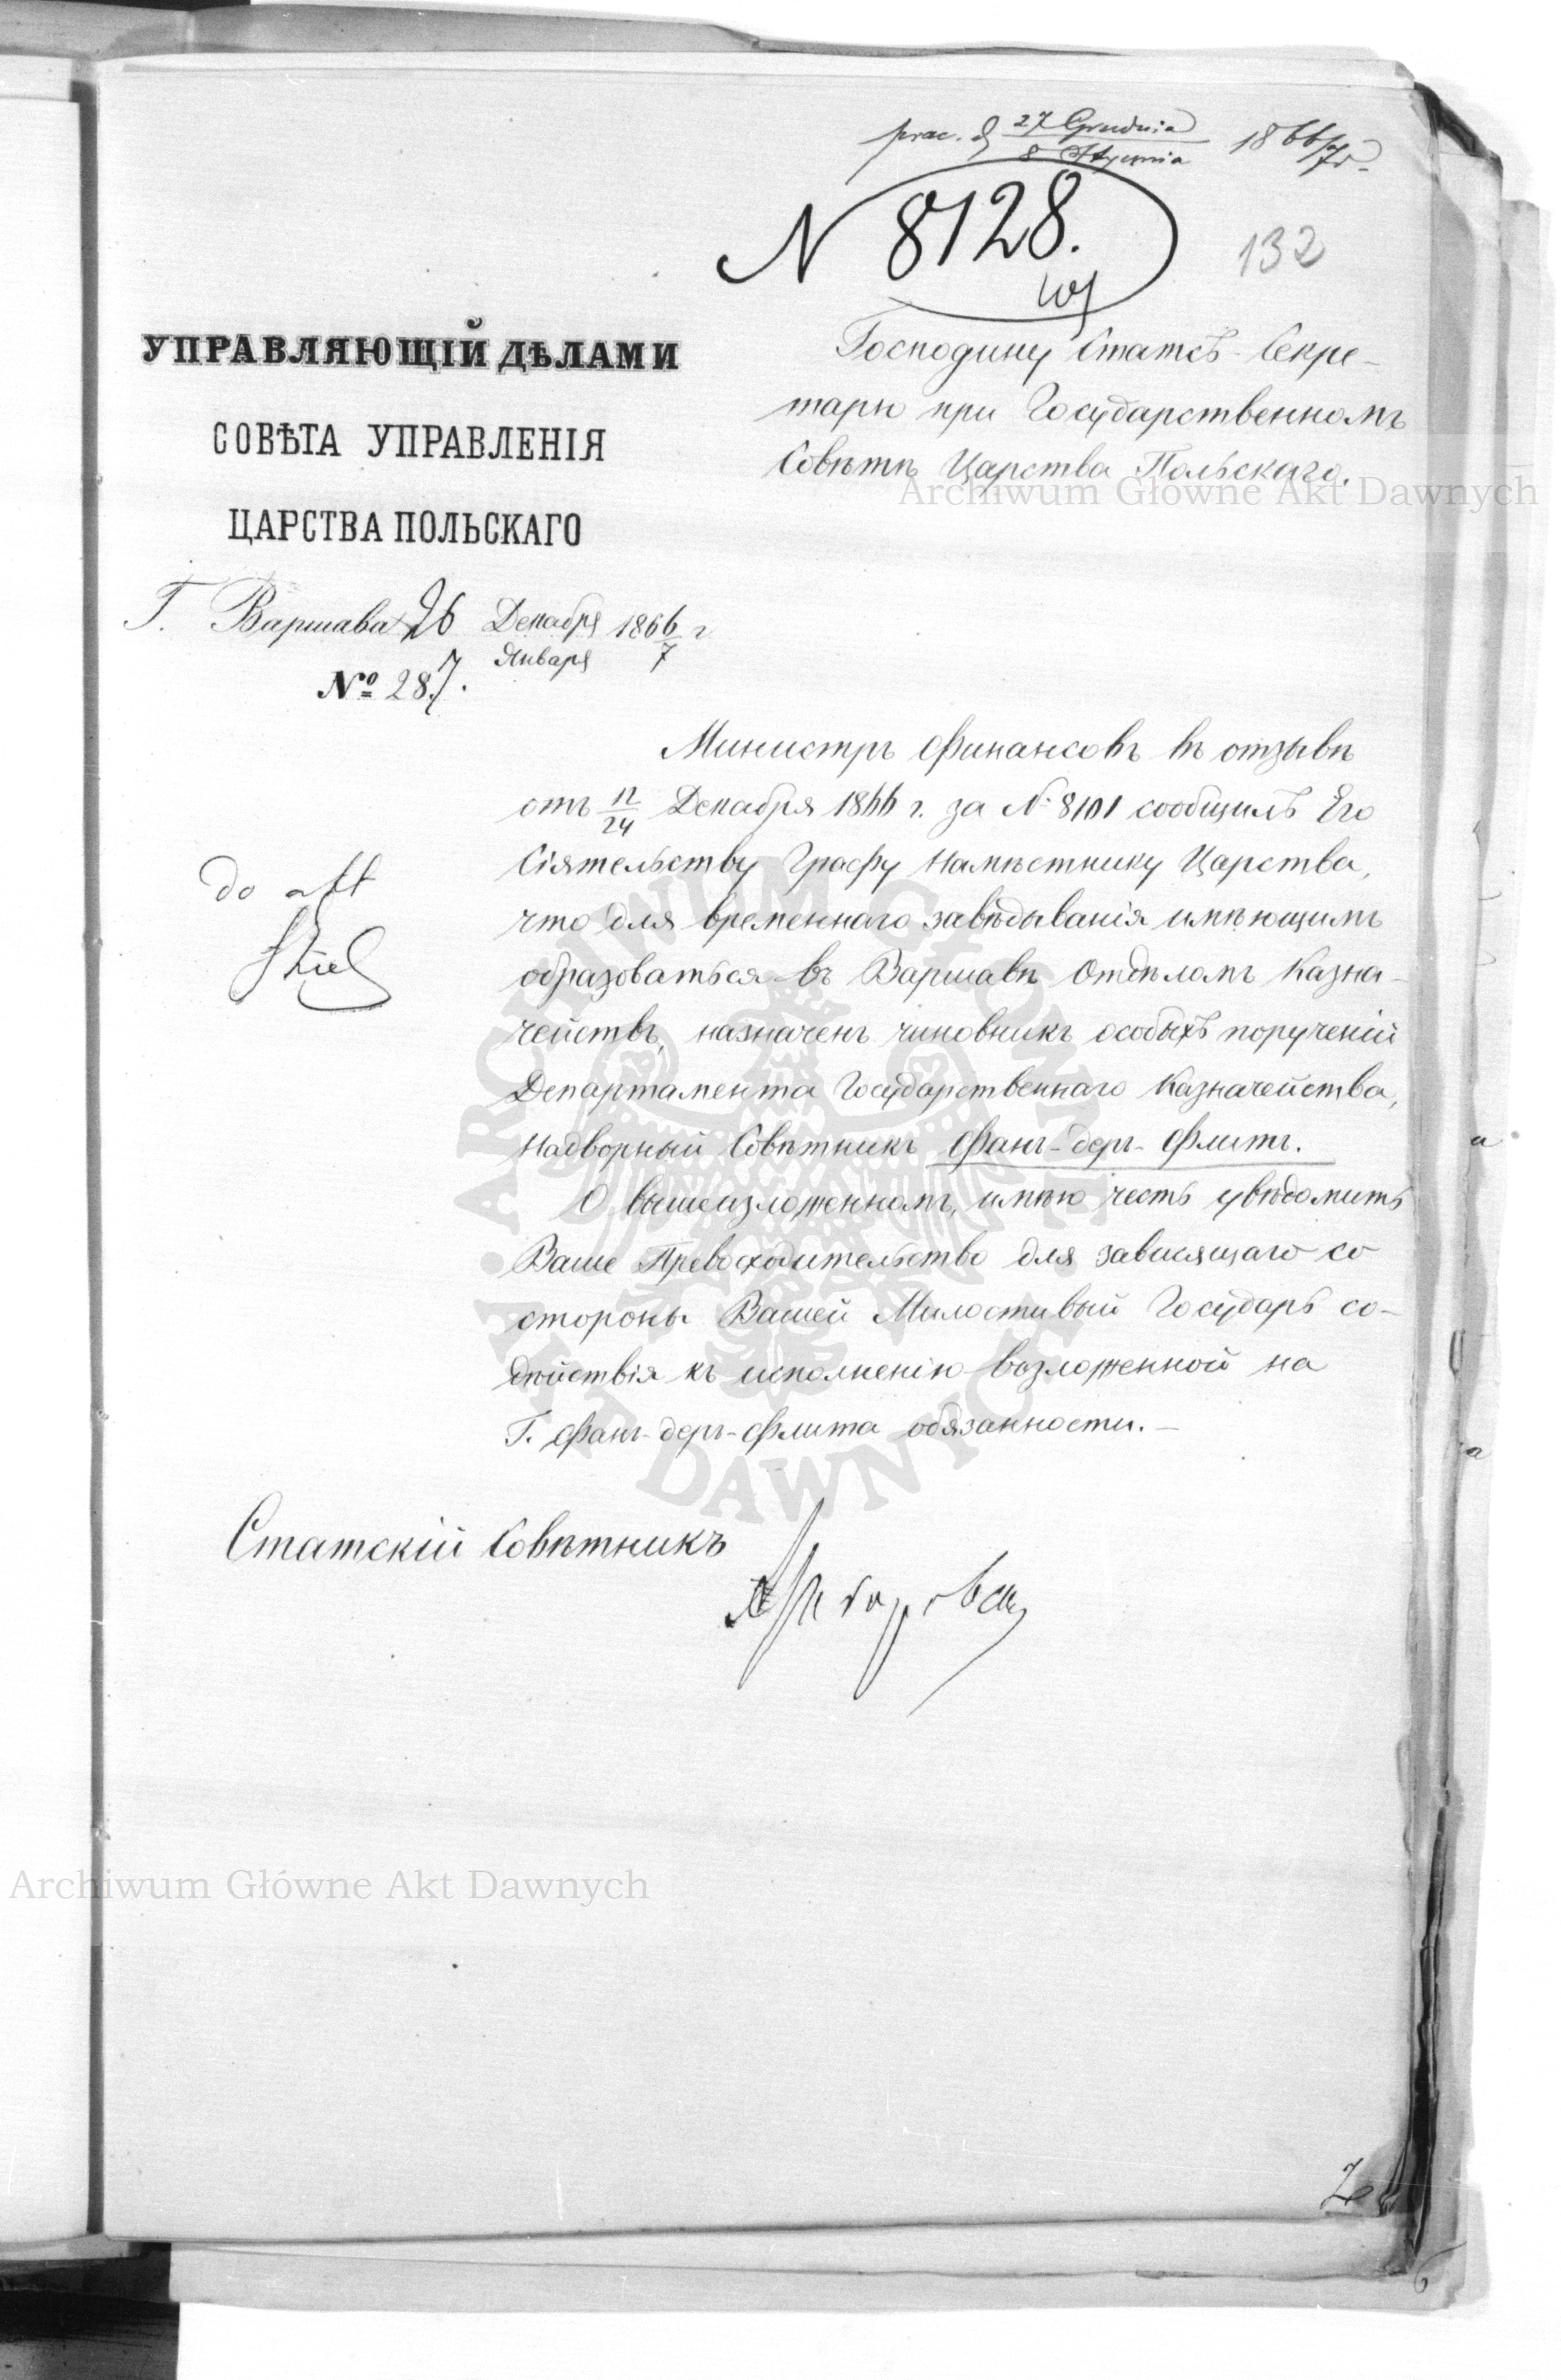 27 Grudnia
8 Stycznia 1866/7 r.
N 8128.
132
УПРАВЛЯЮЩІЙ ДѢЛАМИ
СОВѢТА УПРАВЛЕНІЯ
ЦАРСТВА ПОЛЬСКАГО
Г. Варшава 26 Декабря 1866 г
7 Января 7
№ 287.
Господину Статсъ-Секре-
тарю при Государственномъ
Совѣтѣ Царства Польскаго.
Archiwum Główne Akt Dawnych
Министръ Финансовъ въ отзывѣ
отъ 12/24 Декабря 1866 г. за № 8101 сообщилъ Его
Сіятельству Графу Намѣстнику Царства,
что для временнаго завѣдыванія имѣющимъ
образоваться въ Варшавѣ Отдѣломъ Казна-
чействъ, назначенъ чиновникъ особыхъ порученій
Департамента Государственнаго Казначейства,
Надворный Совѣтникъ Фанъ-деръ-Флитъ.
О вышеизложенномъ, имѣю честь увѣдомить
Ваше Превосходительство для зависящаго со
стороны Вашей Милостивый Государь со-
дѣйствія къ исполненію возложенной на
Г. Фанъ-деръ-Флита обязанности.—
do akt
Статскій Совѣтникъ
ARCHIWUM GŁÓWNE AKT DAWNYCH
Archiwum Główne Akt Dawnych